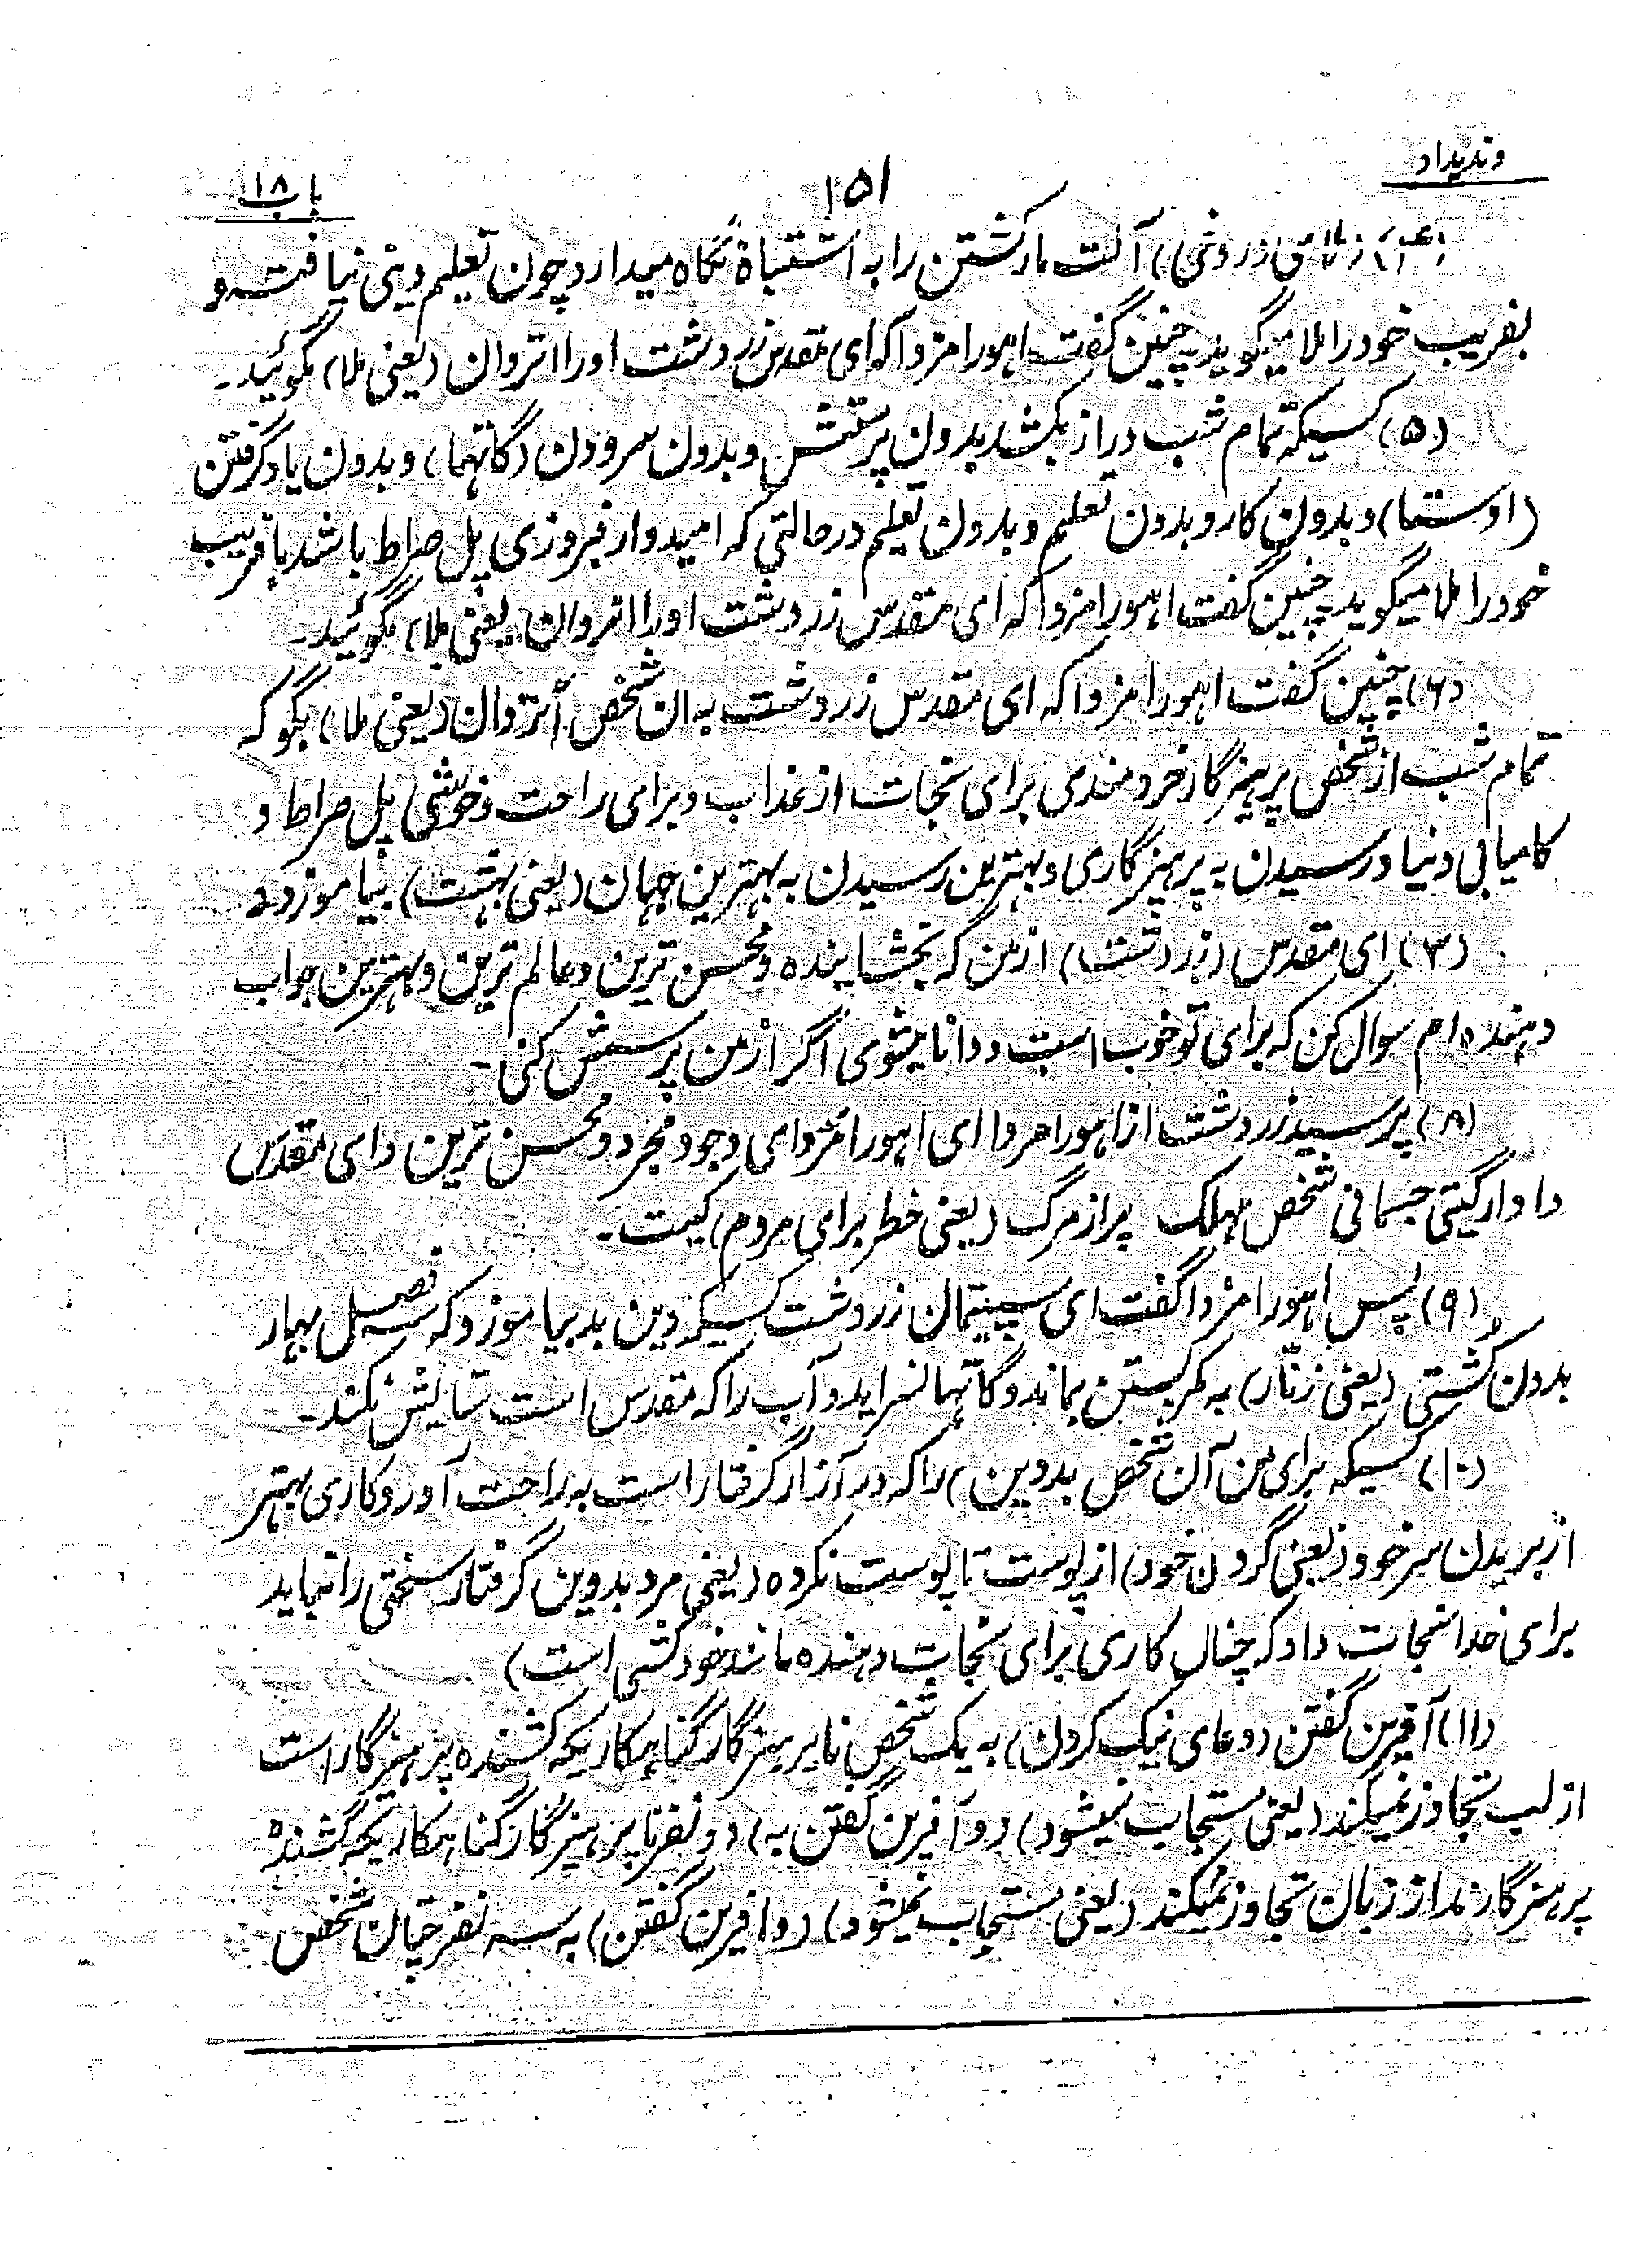 وندیداد
۱۵۱
باب ۱۸
آلت مارکشتن را به اشتباه نگاه میدارد چون تعلیم دینی نیافته و
بفریب خود را ملا میگوید چنین گفت اهورامزدا که ای مقدس زردشت او را اتروان (یعنی ملا) مگوئید۔
(۵) کسیکه تمام شب دراز بکشد بدون پرستش و بدون سرودن (گاتها) و بدون یاد گرفتن
(اوستا) و بدون کار و بدون تعلیم و بدون تعلم در حالتی که امیدوار فیروزی پل صراط باشد با فریب
خود را ملا میگوید چنین گفت اهورامزدا که ای مقدس زردشت او را اتروان (یعنی ملا) مگوئید۔
(۶) چنین گفت اهورامزدا که ای مقدس زردشت به ان شخص اتروان (یعنی ملا) بگو که
تمام شب از شخص پرهیزگار خردمندی برای نجات از عذاب و برای راحت و خوشی پل صراط و
کامیابی دنیا و رسیدن به پرهیزگاری و بهترین رسیدن به بهترین جهان (یعنی بهشت) بیاموزد۔
(۷) ای مقدس (زردشت) از من که بخشاینده و محسن ترین و عالم ترین و بهترین جواب
دهنده ام سوال کن که برای تو خوب است و دانا میشوی اگر از من پرسش کنی۔
(۸) پرسید زردشت از اهورامزدا ای اهورامزدا ای وجود مجرد و محسن ترین و ای مقدس
داوار گیتی جسمانی شخص مهلک پر از مرگ (یعنی خطر برای مردم) کیست۔
(۹) پس اهورامزدا گفت ای سپیتمان زردشت کسیکه دین بد بیاموزد که سه فصل بهار
بدون کُشتی (یعنی زنّار) به کمر بستن بماند و گاتها نسراید و آب را که مقدس است ستایش نکند۔
(۱۰) کسیکه برای من آن شخص بددین) را که در آزار گرفتار است به راحت آورد کاری بهتر
از بریدن سر خود (یعنی گردن خود) از پوست تا پوست نکرده (یعنی مرد بددین گرفتار سختی را نباید
برای خدا نجات داد که چنان کاری برای نجات دهنده مانند خودکشی است)
(۱۱) آفرین گفتن (دعای نیک کردن) به یک شخص ناپرهیزگار گناهکاریکه کشنده پرهیزگار است
از لب تجاوز نمیکند (یعنی مستجاب نمیشود) (و آفرین گفتن به) دو نفر ناپرهیزگار گناهکاریکه کُشندۀ
پرهیزگارند از زبان تجاوز نمیکند (یعنی مستجاب نمیشود) (و افرین گفتن) به سه نفر چنان شخص